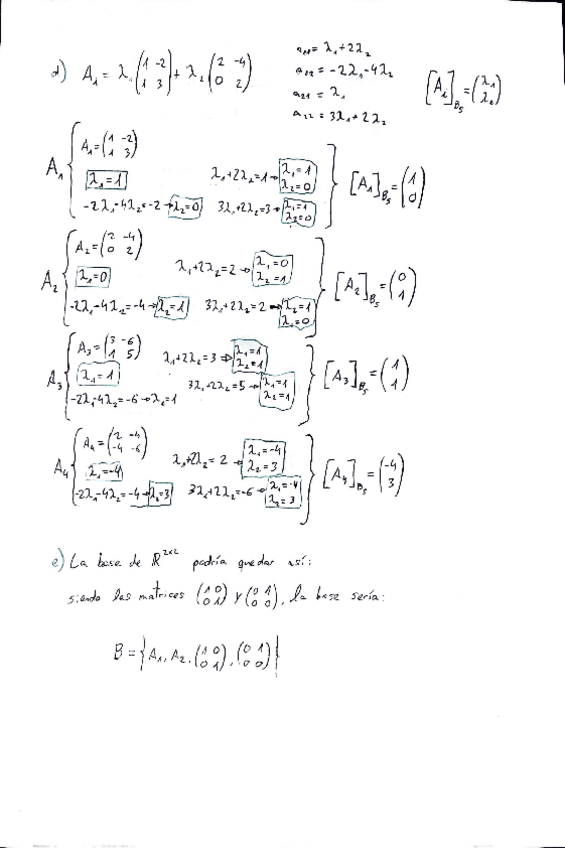 d) A₁ = λ₁ (1 -2 / 1 3) + λ₂ (2 -4 / 0 2)
a₁₁ = λ₁+2λ₂
a₁₂ = -2λ₁-4λ₂
a₂₁ = λ₁
a₂₂ = 3λ₁+2λ₂
[Aᵢ]_Bs = (λ₁ / λ₂)
A₁ { A₁ = (1 -2 / 1 3)
λ₁=1
λ₁+2λ₂=1 → λ₁=1 λ₂=0
-2λ₁-4λ₂=-2 → λ₂=0 3λ₁+2λ₂=3 → λ₁=1 λ₂=0 }
[A₁]_Bs = (1 / 0)
A₂ { A₂ = (2 -4 / 0 2)
λ₁=0
λ₁+2λ₂=2 → λ₁=0 λ₂=1
-2λ₁-4λ₂=-4 → λ₂=1 3λ₁+2λ₂=2 → λ₂=1 λ₁=0 }
[A₂]_Bs = (0 / 1)
A₃ { A₃ = (3 -6 / 1 5)
λ₁=1
λ₁+2λ₂=3 ⇒ λ₁=1 λ₂=1
-2λ₁-4λ₂=-6 → λ₂=1 3λ₁+2λ₂=5 → λ₁=1 λ₂=1 }
[A₃]_Bs = (1 / 1)
A₄ { A₄ = (2 -4 / -4 -6)
λ₁=-4
λ₁+2λ₂=2 → λ₁=-4 λ₂=3
-2λ₁-4λ₂=-4 → λ₂=3 3λ₁+2λ₂=-6 → λ₁=-4 λ₂=3 }
[A₄]_Bs = (-4 / 3)
e) La base de R²ˣ² podría quedar así:
siendo las matrices (1 0 / 0 1) y (0 1 / 0 0), la base sería:
B = {A₁, A₂, (1 0 / 0 1), (0 1 / 0 0)}